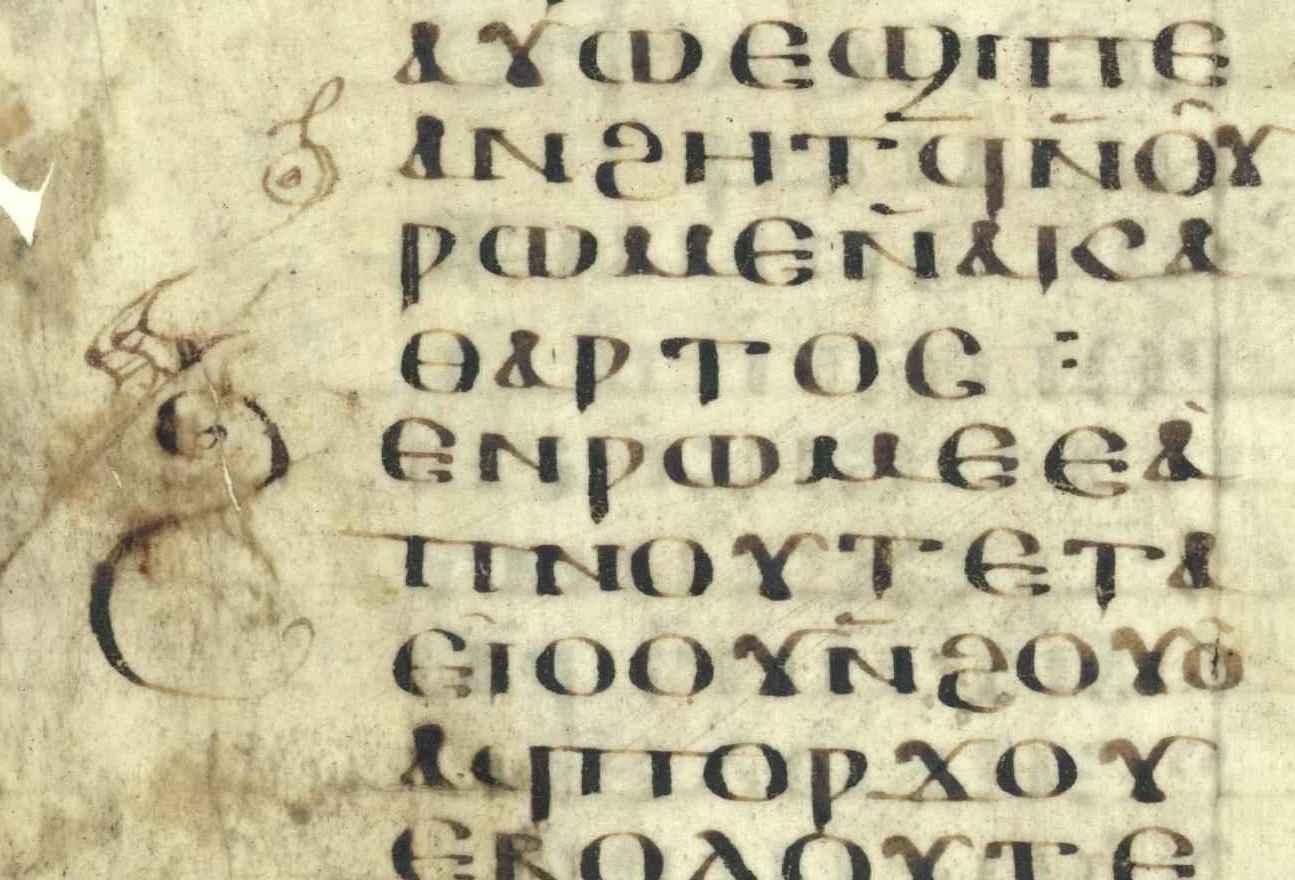 ⲁⲩⲱⲉϣⲓⲡⲉ
ⲁⲛϩⲏⲧϥ̄ⲛ̄ⲟⲩ
ⲣⲱⲙⲉⲛ̄ⲁⲕⲁ
ⲑⲁⲣⲧⲟⲥ :
ϩⲉⲛⲣⲱⲙⲉⲉⲁ̀
ⲡⲛⲟⲩⲧⲉⲧⲁ
ⲉⲓⲟⲟⲩⲛ̄ϩⲟⲩⲟ̀
ⲁϥⲡⲟⲣϫⲟⲩ
ⲉⲃⲟⲗⲟⲩⲧⲉ